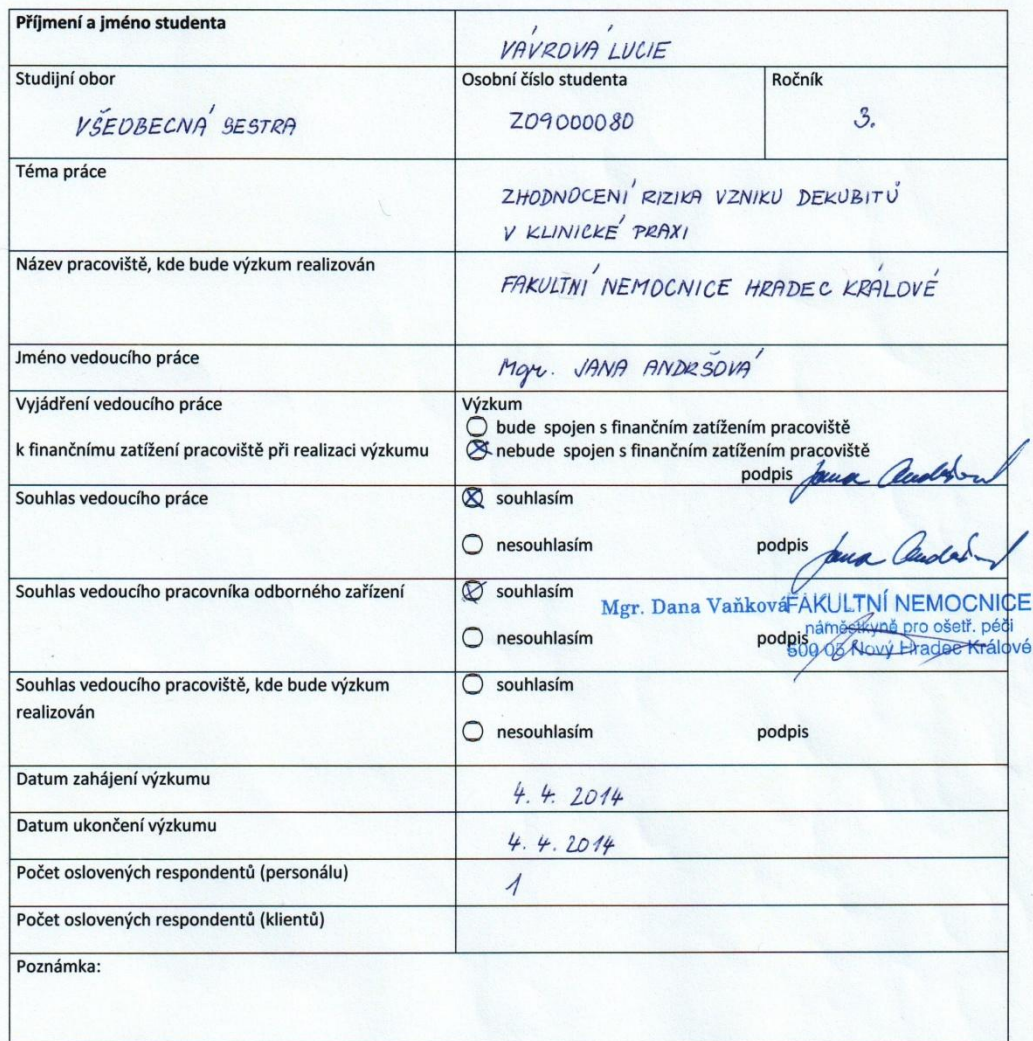 Příjmení a jméno studenta
VÁVROVÁ LUCIE
Studijní obor
VŠEOBECNÁ SESTRA
Osobní číslo studenta
Z09000080
Ročník
3.
Téma práce
ZHODNOCENÍ RIZIKA VZNIKU DEKUBITŮ
V KLINICKÉ PRAXI
Název pracoviště, kde bude výzkum realizován
FAKULTNÍ NEMOCNICE HRADEC KRÁLOVÉ
Jméno vedoucího práce
Mgr. JANA ANDRŠOVÁ
Vyjádření vedoucího práce
k finančnímu zatížení pracoviště při realizaci výzkumu
Výzkum
bude spojen s finančním zatížením pracoviště
nebude spojen s finančním zatížením pracoviště
podpis Jana Andršová
Souhlas vedoucího práce
souhlasím
nesouhlasím podpis Jana Andršová
Souhlas vedoucího pracovníka odborného zařízení
souhlasím
Mgr. Dana Vaňková FAKULTNÍ NEMOCNICE
náměstkyně pro ošetř. péči
nesouhlasím podpis
500 05 Nový Hradec Králové
Souhlas vedoucího pracoviště, kde bude výzkum
realizován
souhlasím
nesouhlasím podpis
Datum zahájení výzkumu
4. 4. 2014
Datum ukončení výzkumu
4. 4. 2014
Počet oslovených respondentů (personálu)
1
Počet oslovených respondentů (klientů)
Poznámka: